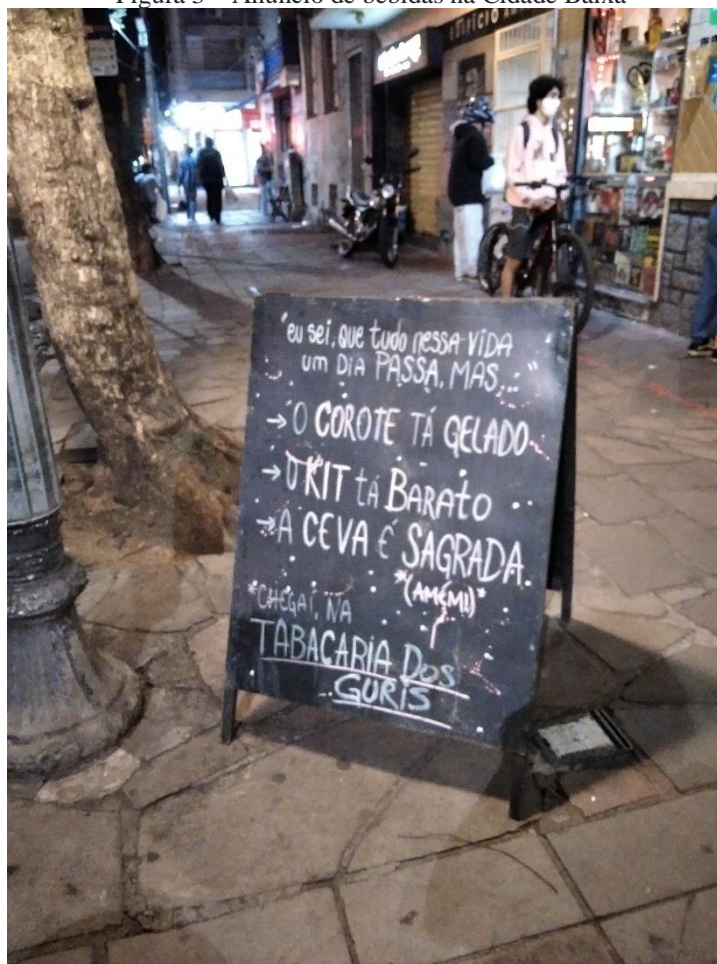 Figura 3 – Anúncio de bebidas na Cidade Baixa
"eu sei, que tudo nessa VIDA
um DIA PASSA, MAS..."
→ O COROTE TÁ GELADO
→ O KIT tá BARATO
→ A CEVA É SAGRADA
*(AMÉM!)*
*CHEGAÍ, NA
TABACARIA DOS
GURIS